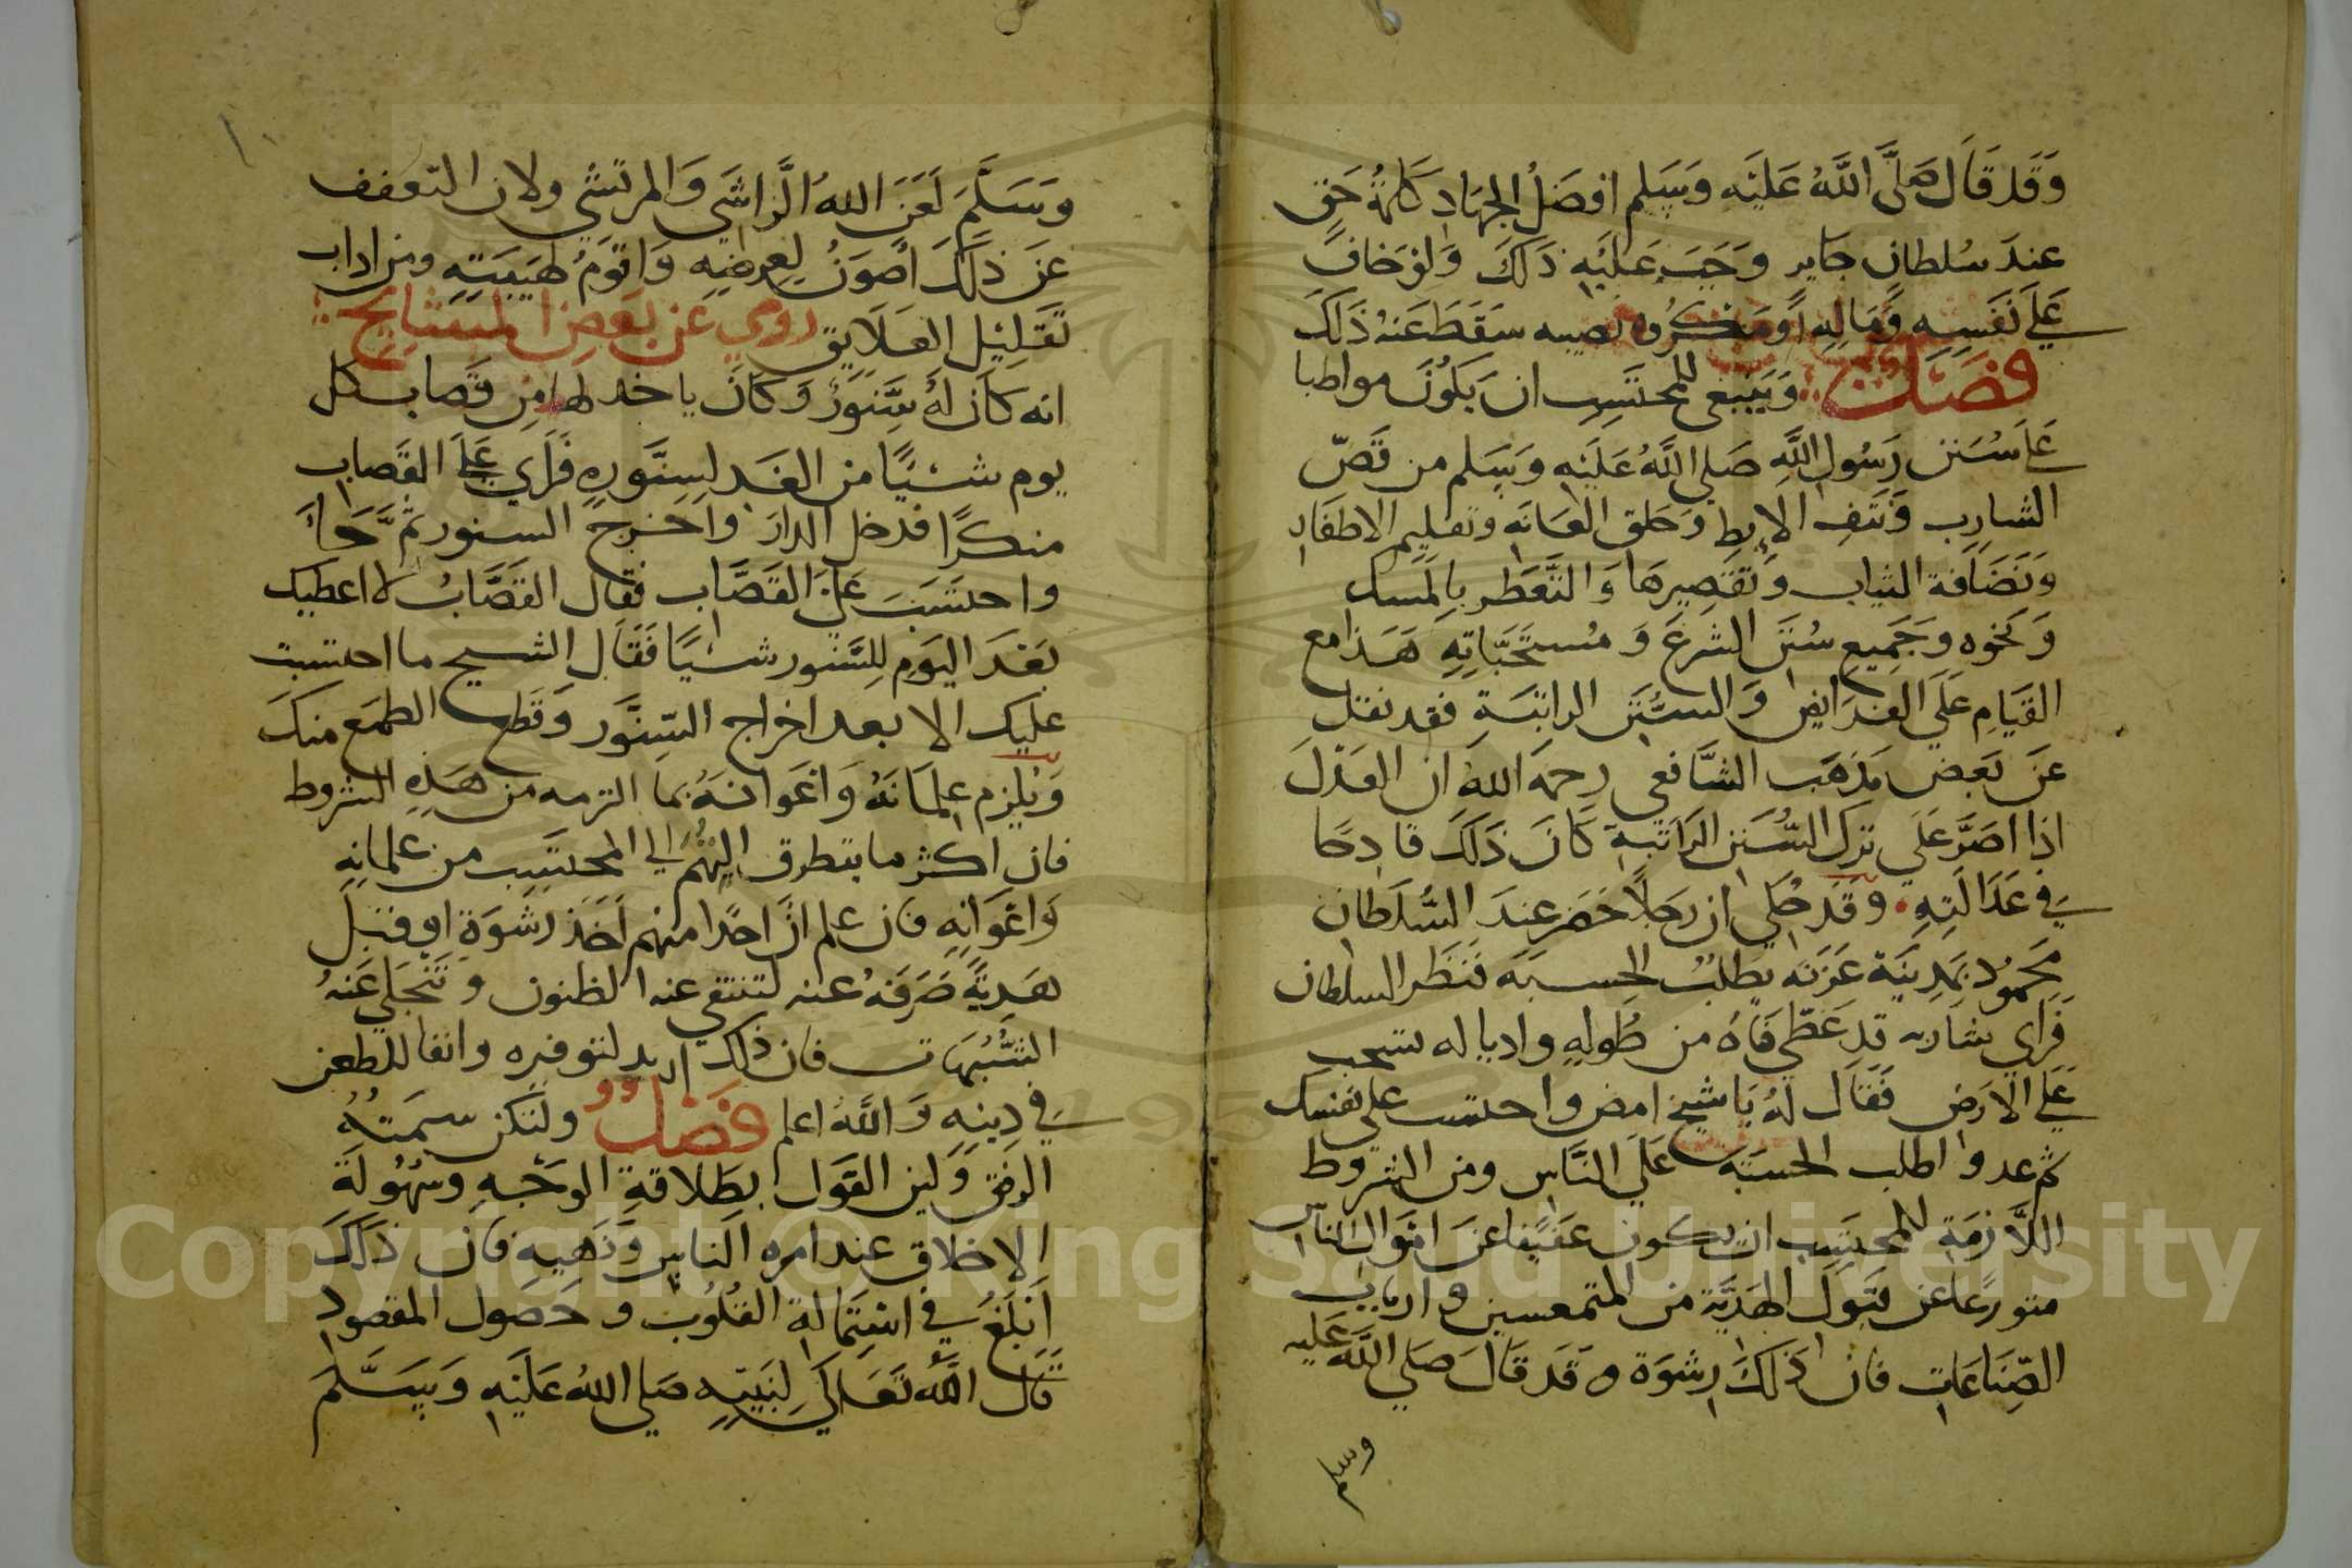 وَقَد قَالَ صَلَّى اللَّهُ عَلَيْهِ وَسَلم افضَلُ الجِهَادِ كَلمَةُ حَقٍ
عندَ سُلطانٍ جَايرٍ وَجَبَ عَلَيْهِ ذَلكَ وَان خَافَ
عَلَى نَفسِهِ وَمَالِهِ اَو مَكرُوه يصيبه سَقَطَ عَنهُ ذَلكَ
فصل وَيَنبغي للمحتَسِبِ ان يَكُونَ مواظبا
عَلَى سُنَن رَسُولِ اللَّهِ صَلي اللَّهُ عَلَيْهِ وَسَلم من قَصّ
الشارِبِ وَنَتفِ الابِط وَحَلق العَانَه وَتقليم الاظفار
وَنَضَافة الثياب وَتَقصِيرهَا وَالتَّعَطر بِالمسك
وَنحوه وَجَمِيعِ سُنَن الشرعَ وَمُستَحَبَّاتِهِ هَذا مع
القيَامِ عَلَي الفرايض وَالسُّنَنِ الراتبَةِ فقد نقل
عَن بَعض مَذهَب الشَّافعي رحمَه الله ان العَدلَ
اذا اصَرَّ عَلَي ترك السُّنَن الرَاتبَةِ كَانَ ذَلكَ قادحًا
في عَدَالَتِهِ وقَد حُكي ان رَجلاً حَضَر عندَ السُّلطان
مَحمُود بمَدِينَة غزنَه يطلبُ الحسبَة فنَظَر السلطان
فَرَاي شاربه قد غَطي فَاه من طُولِهِ واديا له تسحب
عَلَي الارَض فَقَالَ لهُ يَا شيخ امض واحتسب علي نفسك
ثم عد واطلب الحسبَة عَلَي النَّاس ومن الشروط
اللاَّزمَةِ للمحتسِب ان يكون عفيفًا عَن امَوال الناس
متورعًا عن قبَول الهَديَّة من المتمعسين وارباب
الصّنَاعَات فان ذَلكَ رشوَة وَقَد قَالَ صَلي اللَّه عَلَيه
وسلم
وَسَلَّمَ لَعَنَ اللهُ الرَّاشي وَالمرتشي ولان التعفف
عَن ذَلكَ اَصوَنُ لِعِرضِهِ وَاقوَمُ لهَيبَتِهِ ومن اداب
تَقلِيل العلاَيق روي عن بَعضِ المشايخ
انه كَانَ لَهُ سِّنَورٌ وَكَانَ ياخد لها مِن قصاب كل
يوم شئيًا من الغَدد لسِنَّورِهِ فَرَاي عَلَى القَصاب
منكرًا فدخل الدار واَخرجَ السنور ثمَّ جَاءَ
واحتسَبَ عَلَى القَصَّاب فقال القَصَّابُ لا اعطيك
بَعَد اليَوم لِلسّنور شئيًا فَقَال الشيخ ما احتسبت
عليك الا بعد اخراج السّنَّور وَقطع الطمَع منكَ
وَيُلزم غلمَانَهُ وَاعَوانَهُ بما التزمه من هَذِهِ الشروط
فان اكثر ما يتطرق اليهم الي المحتسِب من غلمانهِ
وَاعَوانِهِ فان علم انَّ احدًا منهم اَخَذ رشوَةٍ او قبل
هَديَّةً صَرَفَهُ عنه لتنتفي عنه الظنون وَتَنجَلي عَنهُ
الشُّبُهَات فان ذلك ازيد لتوفيره واتقا للطعن
في دِينِهِ وَاللَّهُ اعلم فصل ولتَكن سمَتهُ
الرِفق وَلين القَول بطلاقةِ الوجهِ وسُهُولَة
الاخلاق عند امره الناس وَنَهيهِ فان ذَلكَ
اَبلَغ في استمَالة القلُوب وحصَول المقصود
قال اللَّه تعَالي لِنَبيّه صَلي اللهُ عَلَيْهِ وَسَلَّمَ
Copyright © King Saud University